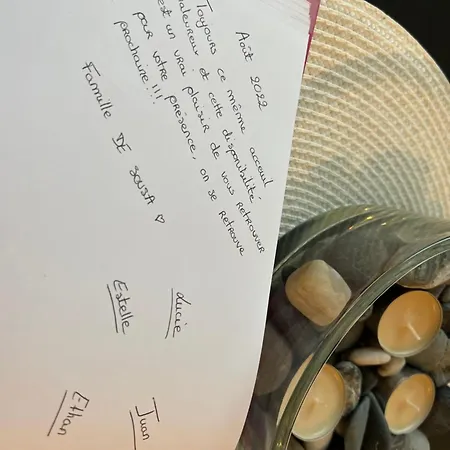 Août 2022
Toujours ce même acceuil
chaleureux et cette disponibilité
est un vrai plaisir de vous retrouver
pour votre présence, on se retrouve
prochaine!!!
Famille DE SOUSA ♡
Lucie
Estelle
Juan
Ethan